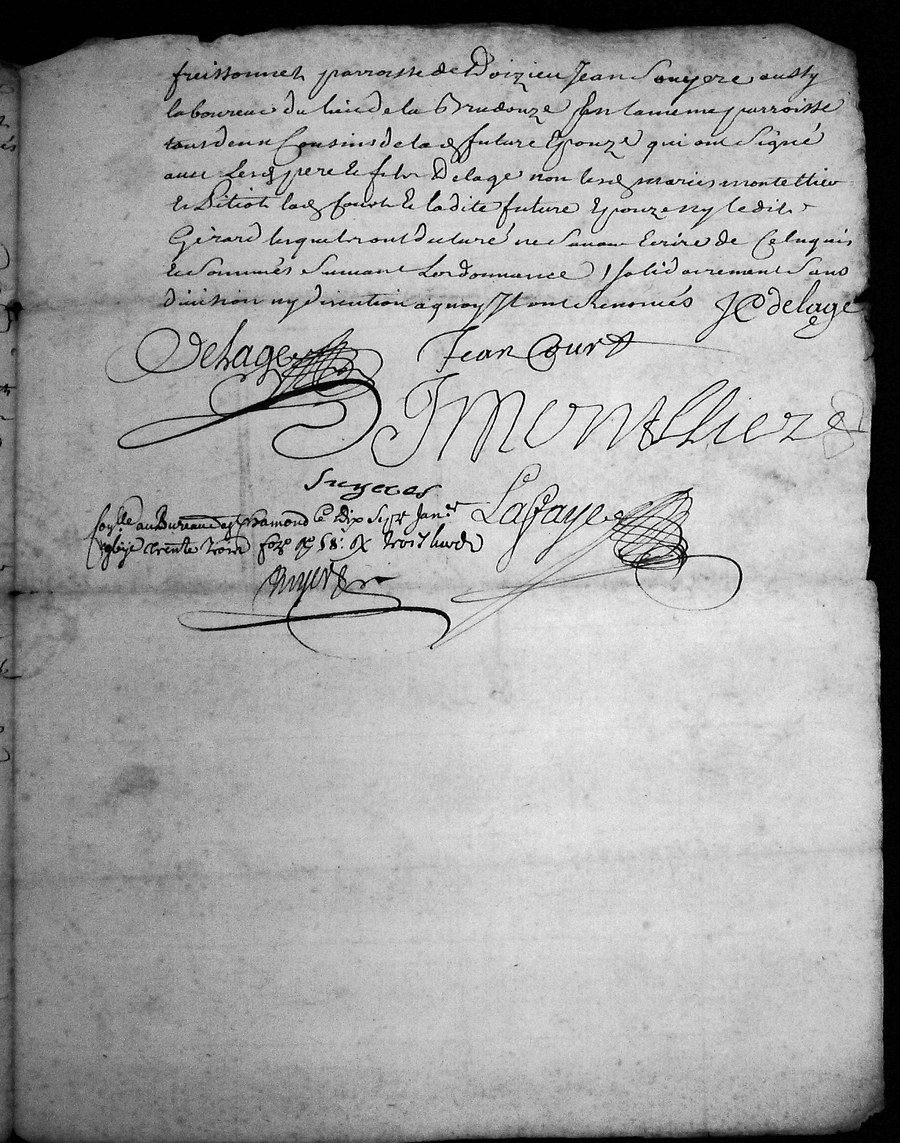 freissonnet parroisse de Doizieu Jean Souyere aussy
laboureur du lieu de la Brudouze en la meme parroisse
tous deux Cousins de lad future Epouze qui ont Signé
avec Lesd pere et fils Delage non lesd maries montellier
et Pitiot lad fourt et ladite future Epouze ny ledit
Gérard lesquels ont declaré ne Savoir Ecrire de Ce enquis
et Sommés Suivant Lordonnance Solidairement Sans
division ny discution a quoy Ils ont Renoncés JC delage
Delage Jean Court
J Montellier
Suyeres
Lafaye
au Bureau de St Chamond le Dix Sept Janer
trente trois trois livres